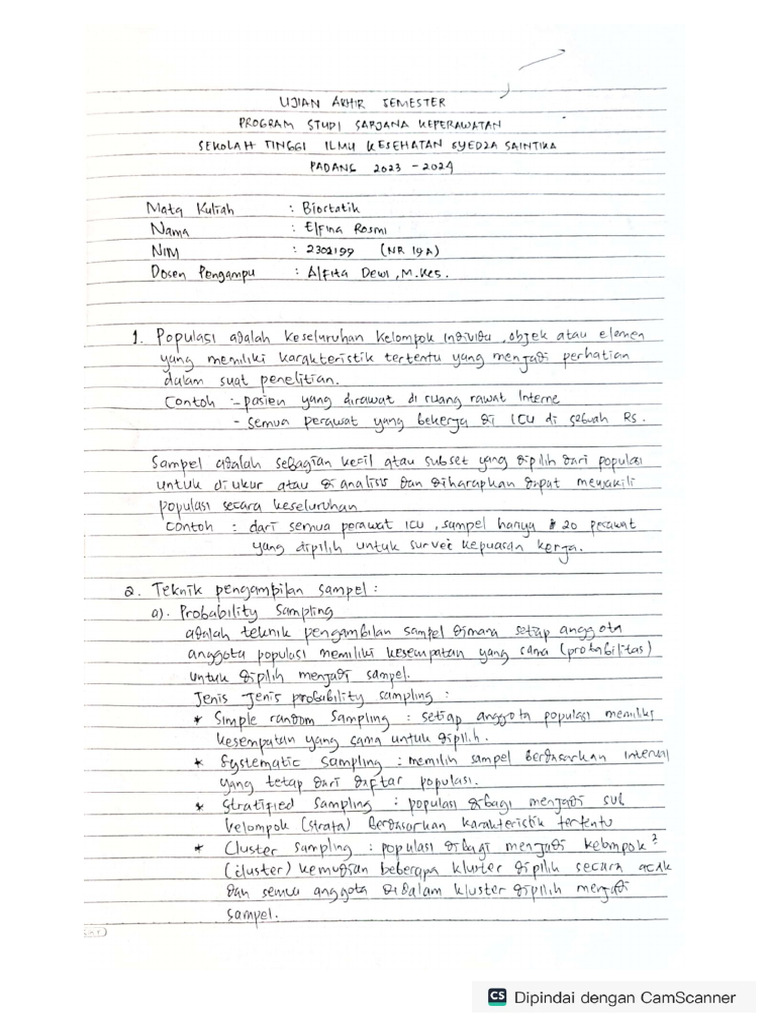 UJIAN AKHIR SEMESTER
PROGRAM STUDI SARJANA KEPERAWATAN
SEKOLAH TINGGI ILMU KESEHATAN SYEDZA SAINTIKA
PADANG 2023 - 2024
Mata Kuliah : Biostatik
Nama : Elfina Rosmi
NIM : 2302199 (NR 19A)
Dosen Pengampu : Alfita Dewi, M.Kes.
1. Populasi adalah keseluruhan kelompok individu, objek atau elemen
yang memiliki karakteristik tertentu yang menjadi perhatian
dalam suat penelitian.
Contoh :- pasien yang dirawat di ruang rawat Interne
- Semua perawat yang bekerja di ICU di sebuah RS.
Sampel adalah sebagian kecil atau subset yang dipilih dari populasi
untuk di ukur atau di analisis dan diharapkan dapat mewakili
populasi secara keseluruhan
Contoh : dari semua perawat ICU, sampel hanya 20 perawat
yang dipilih untuk survei kepuasan kerja.
2. Teknik pengambilan sampel :
a). Probability Sampling
adalah teknik pengambilan sampel dimana setiap anggota
anggota populasi memiliki kesempatan yang sama (probabilitas)
untuk dipilih menjadi sampel.
Jenis - Jenis probability sampling :
* Simple random Sampling : setiap anggota populasi memiliki
kesempatan yang sama untuk dipilih.
* Systematic Sampling : memilih sampel berdasarkan interval
yang tetap dari daftar populasi.
* Stratified Sampling : populasi dibagi menjadi sub
kelompok (strata) Berdasarkan karakteristik tertentu
* Cluster Sampling : populasi dibagi menjadi kelompok²
(cluster) kemudian beberapa kluster dipilih secara acak
dan semua anggota didalam kluster dipilih menjadi
sampel.
CS Dipindai dengan CamScanner